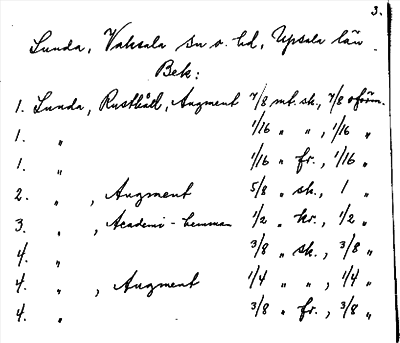 3.
Lunda, Vaksala sn o. hd, Upsala län.
Bek:
1. Lunda, Rusthåll, Augment 7/8 mt. sk., 7/8 oförm.
1. „ 1/16 „ „, 1/16 „
1. „ 1/16 „ fr., 1/16 „
2. „ , Augment 5/8 „ sk., 1 „
3. „ , Academi-hemman 1/2 „ kr., 1/2 „
4. „ 3/8 „ sk., 3/8 „
4. „ , Augment 1/4 „ „, 1/4 „
4. „ 3/8 „ fr., 3/8 „